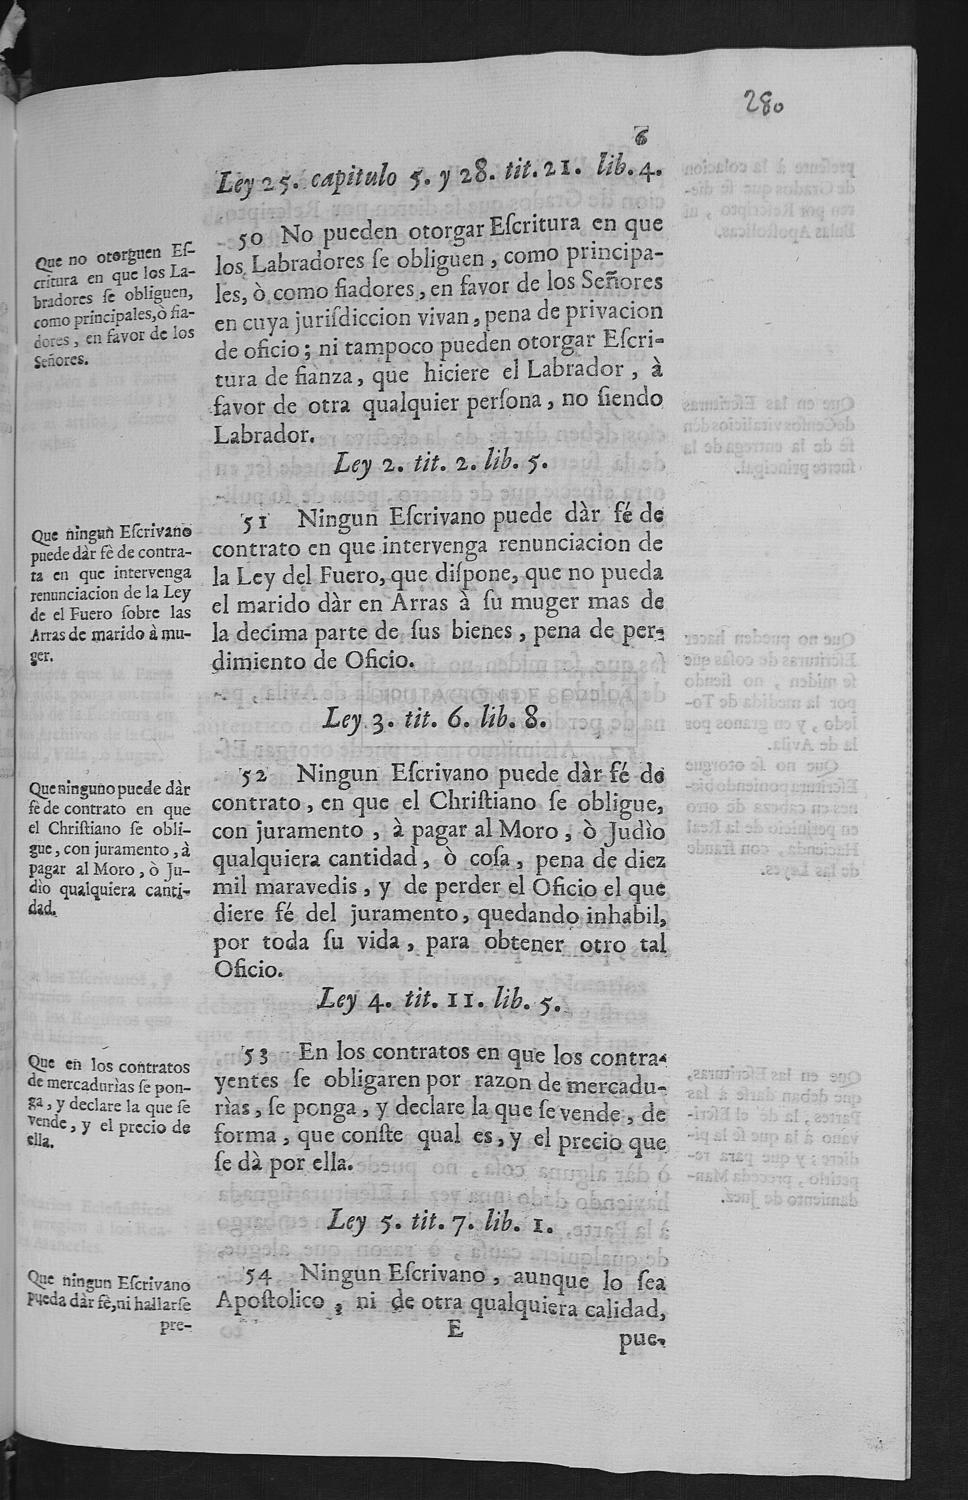 280
6
Ley 25. capitulo 5. y 28. tit. 21. lib. 4.
Que no otorguen Eſ-
critura en que los La-
bradores ſe obliguen,
como principales, ò fia-
dores, en favor de los
Señores.
50 No pueden otorgar Eſcritura en que
los Labradores ſe obliguen, como principa-
les, ò como fiadores, en favor de los Señores
en cuya juriſdiccion vivan, pena de privacion
de oficio; ni tampoco pueden otorgar Eſcri-
tura de fianza, que hiciere el Labrador, à
favor de otra qualquier perſona, no ſiendo
Labrador.
Ley 2. tit. 2. lib. 5.
Que ningun Eſcrivano
puede dàr fè de contra-
ta en que intervenga
renunciacion de la Ley
de el Fuero ſobre las
Arras de marido à mu-
ger.
51 Ningun Eſcrivano puede dàr fé de
contrato en que intervenga renunciacion de
la Ley del Fuero, que diſpone, que no pueda
el marido dàr en Arras à ſu muger mas de
la decima parte de ſus bienes, pena de per-
dimiento de Oficio.
Ley 3. tit. 6. lib. 8.
Que ninguno puede dàr
fè de contrato en que
el Chriſtiano ſe obli-
gue, con juramento, à
pagar al Moro, ò Ju-
dio qualquiera canti-
dad.
52 Ningun Eſcrivano puede dàr fé de
contrato, en que el Chriſtiano ſe obligue,
con juramento, à pagar al Moro, ò Judìo
qualquiera cantidad, ò coſa, pena de diez
mil maravedis, y de perder el Oficio el que
diere fé del juramento, quedando inhabil,
por toda ſu vida, para obtener otro tal
Oficio.
Ley 4. tit. 11. lib. 5.
Que en los contratos
de mercadurìas ſe pon-
ga, y declare la que ſe
vende, y el precio de
ella.
53 En los contratos en que los contra-
yentes ſe obligaren por razon de mercadu-
rìas, ſe ponga, y declare la que ſe vende, de
forma, que conſte qual es, y el precio que
ſe dà por ella.
Ley 5. tit. 7. lib. 1.
Que ningun Eſcrivano
pueda dàr fè, ni hallarſe
pre-
54 Ningun Eſcrivano, aunque lo ſea
Apoſtolico, ni de otra qualquiera calidad,
E
pue-